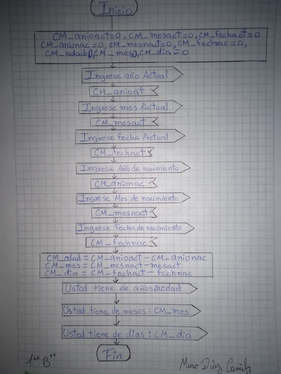 Inicio
CM_anioact=0, CM_mesact=0, CM_fechact=0
CM_anionac=0, CM_mesnact=0, CM_fechnac=0,
CM_edad=0, CM_mes=0, CM_dia=0
Ingrese año Actual
CM_anioact
Ingrese mes Actual
CM_mesact
Ingrese fecha Actual
CM_fechact
Ingrese Año de nacimiento
CM_anionac
Ingrese Mes de nacimiento
CM_mesnact
Ingrese Fecha de nacimiento
CM_fechnac
CM_edad = CM_anioact - CM_anionac
CM_mes = CM_mesnact - mesact
CM_dia = CM_fechact - fechnac
Usted tiene de años:
Usted tiene de meses: CM_mes
Usted tiene de días: CM_dia
Fin
1ro "B"
Díaz